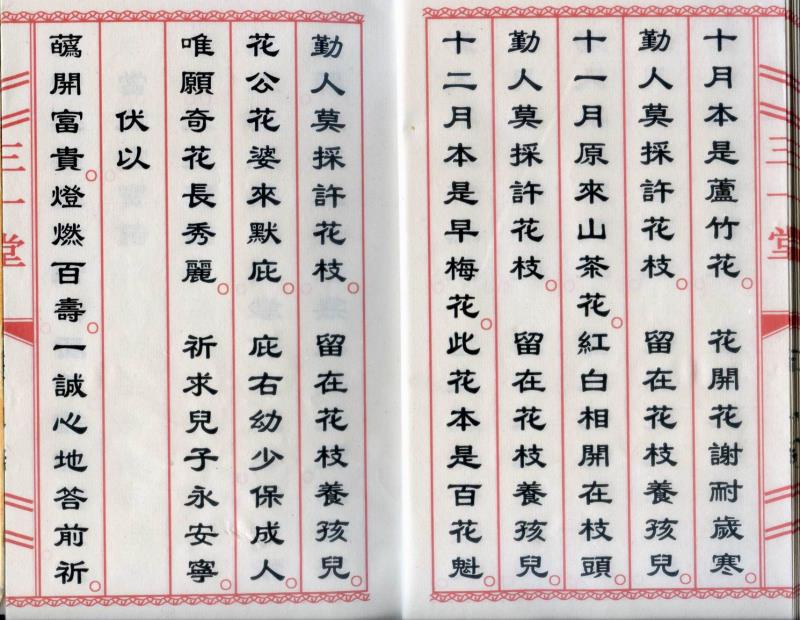 三一堂
十月本是蘆竹花。花開花謝耐歲寒。
勤人莫採許花枝。留在花枝養孩兒。
十一月原來山茶花。紅白相開在枝頭。
勤人莫採許花枝。留在花枝養孩兒。
十二月本是早梅花。此花本是百花魁。
勤人莫採許花枝。留在花枝養孩兒。
花公花婆來默庇。庇右幼少保成人。
唯願奇花長秀麗。祈求兒子永安寧。
伏以
蘤開富貴。燈燃百壽。一誠心地答前祈。
三一堂